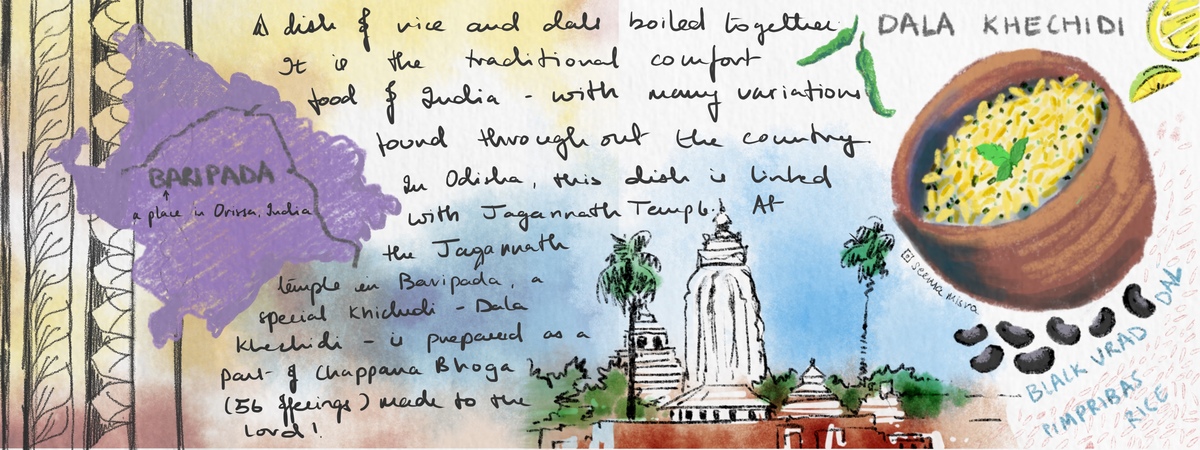 A dish of rice and dals boiled together.
It is the traditional comfort
food of India - with many variations
found throughout the country.
In Odisha, this dish is linked
with Jagannath Temple. At
the Jagannath
temple in Baripada, a
special Khichdi - Dala
Khechidi - is prepared as a
part of Chappana Bhoga
(56 offerings) made to the
Lord!
BARIPADA
a place in Orissa, India
DALA KHECHIDI
seema misra
BLACK URAD DAL
PIMPRIBAS
RICE